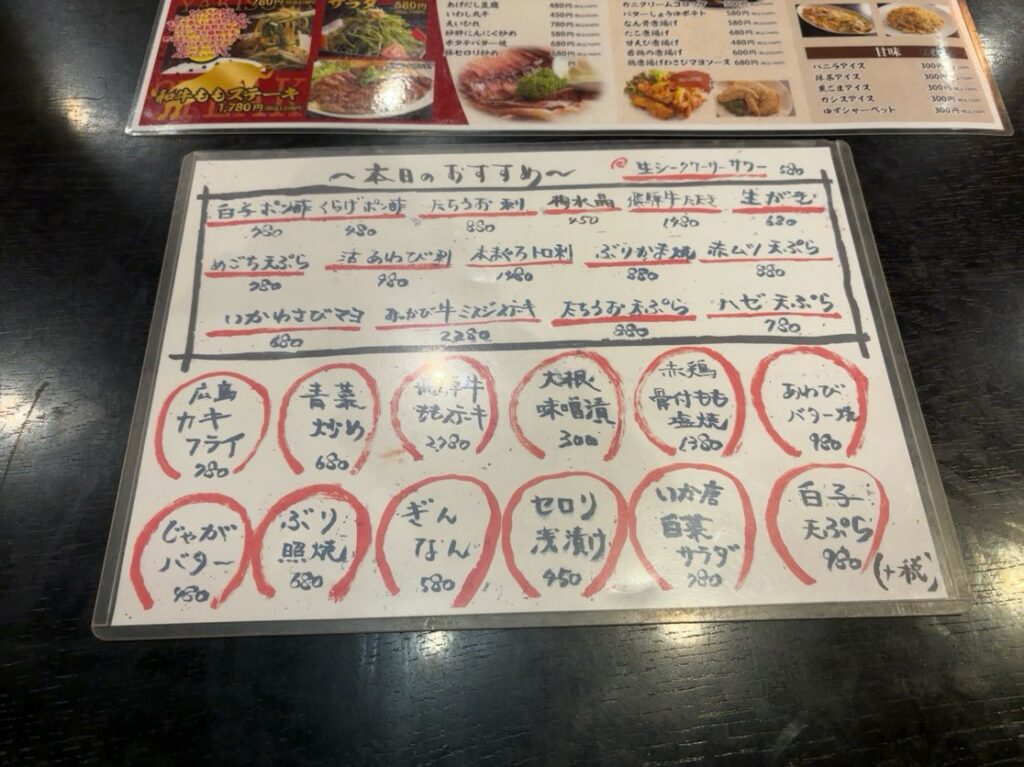 780円
サラダ 680円
和牛ももステーキ
1,780円
あげだし豆腐 480円
いわし丸干 450円
えいひれ 780円
砂肝にんにく炒め 580円
ホタテバター焼 680円
豚セロリ炒め 680円
カニクリームコロッケ
バターしょうゆポテト 500円
なん骨唐揚げ 580円
たこ唐揚げ 680円
甘えび唐揚げ 480円
若鶏の唐揚げ 600円
鶏唐揚げわさびマヨソース 680円
甘味
バニラアイス 300円
抹茶アイス 300円
黒ごまアイス 300円
カシスアイス 300円
ゆずシャーベット 300円
〜本日のおすすめ〜
生シークワーサーサワー 580
白子ポン酢 くらげポン酢 たちうお刺 梅水晶 飛騨牛たたき 生がき
980 480 880 450 1480 680
めごち天ぷら 活あわび刺 本まぐろトロ刺 ぶりかま焼 赤ムツ天ぷら
780 980 1980 880 880
いかわさびマヨ みかび牛ミスジステーキ たちうお天ぷら ハゼ天ぷら
680 2,280 880 780
広島
カキ
フライ
780
青菜
炒め
680
飛騨牛
ももステーキ
2,780
大根
味噌漬
300
赤鶏
骨付もも
塩焼
1380
あわび
バター焼
980
じゃが
バター
480
ぶり
照焼
680
ぎん
なん
580
セロリ
浅漬け
450
いか唐
白菜
サラダ
780
白子
天ぷら
980
(+税)